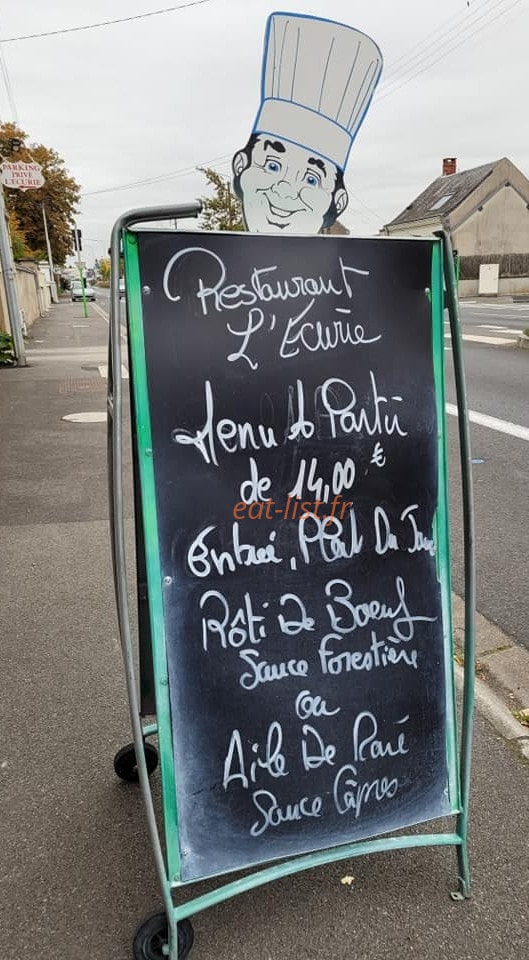 PARKING
PRIVÉ
L'ECURIE
Restaurant
L'Écurie
Menu A Partir
de 14,00 €
eat-list.fr
Entrée, Plat Du Jour
Rôti De Boeuf
Sauce Forestière
ou
Aile De Raie
Sauce Câpres